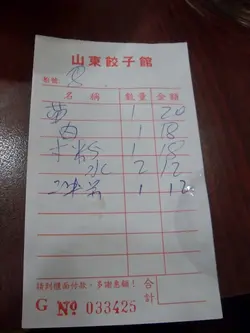 山東餃子館
點號:
名稱 數量 金額
黃 1 20
白 1 18
1 18
水 2 12
冰 1 12
請到櫃面付款,多謝惠顧!
合計
G No 033425